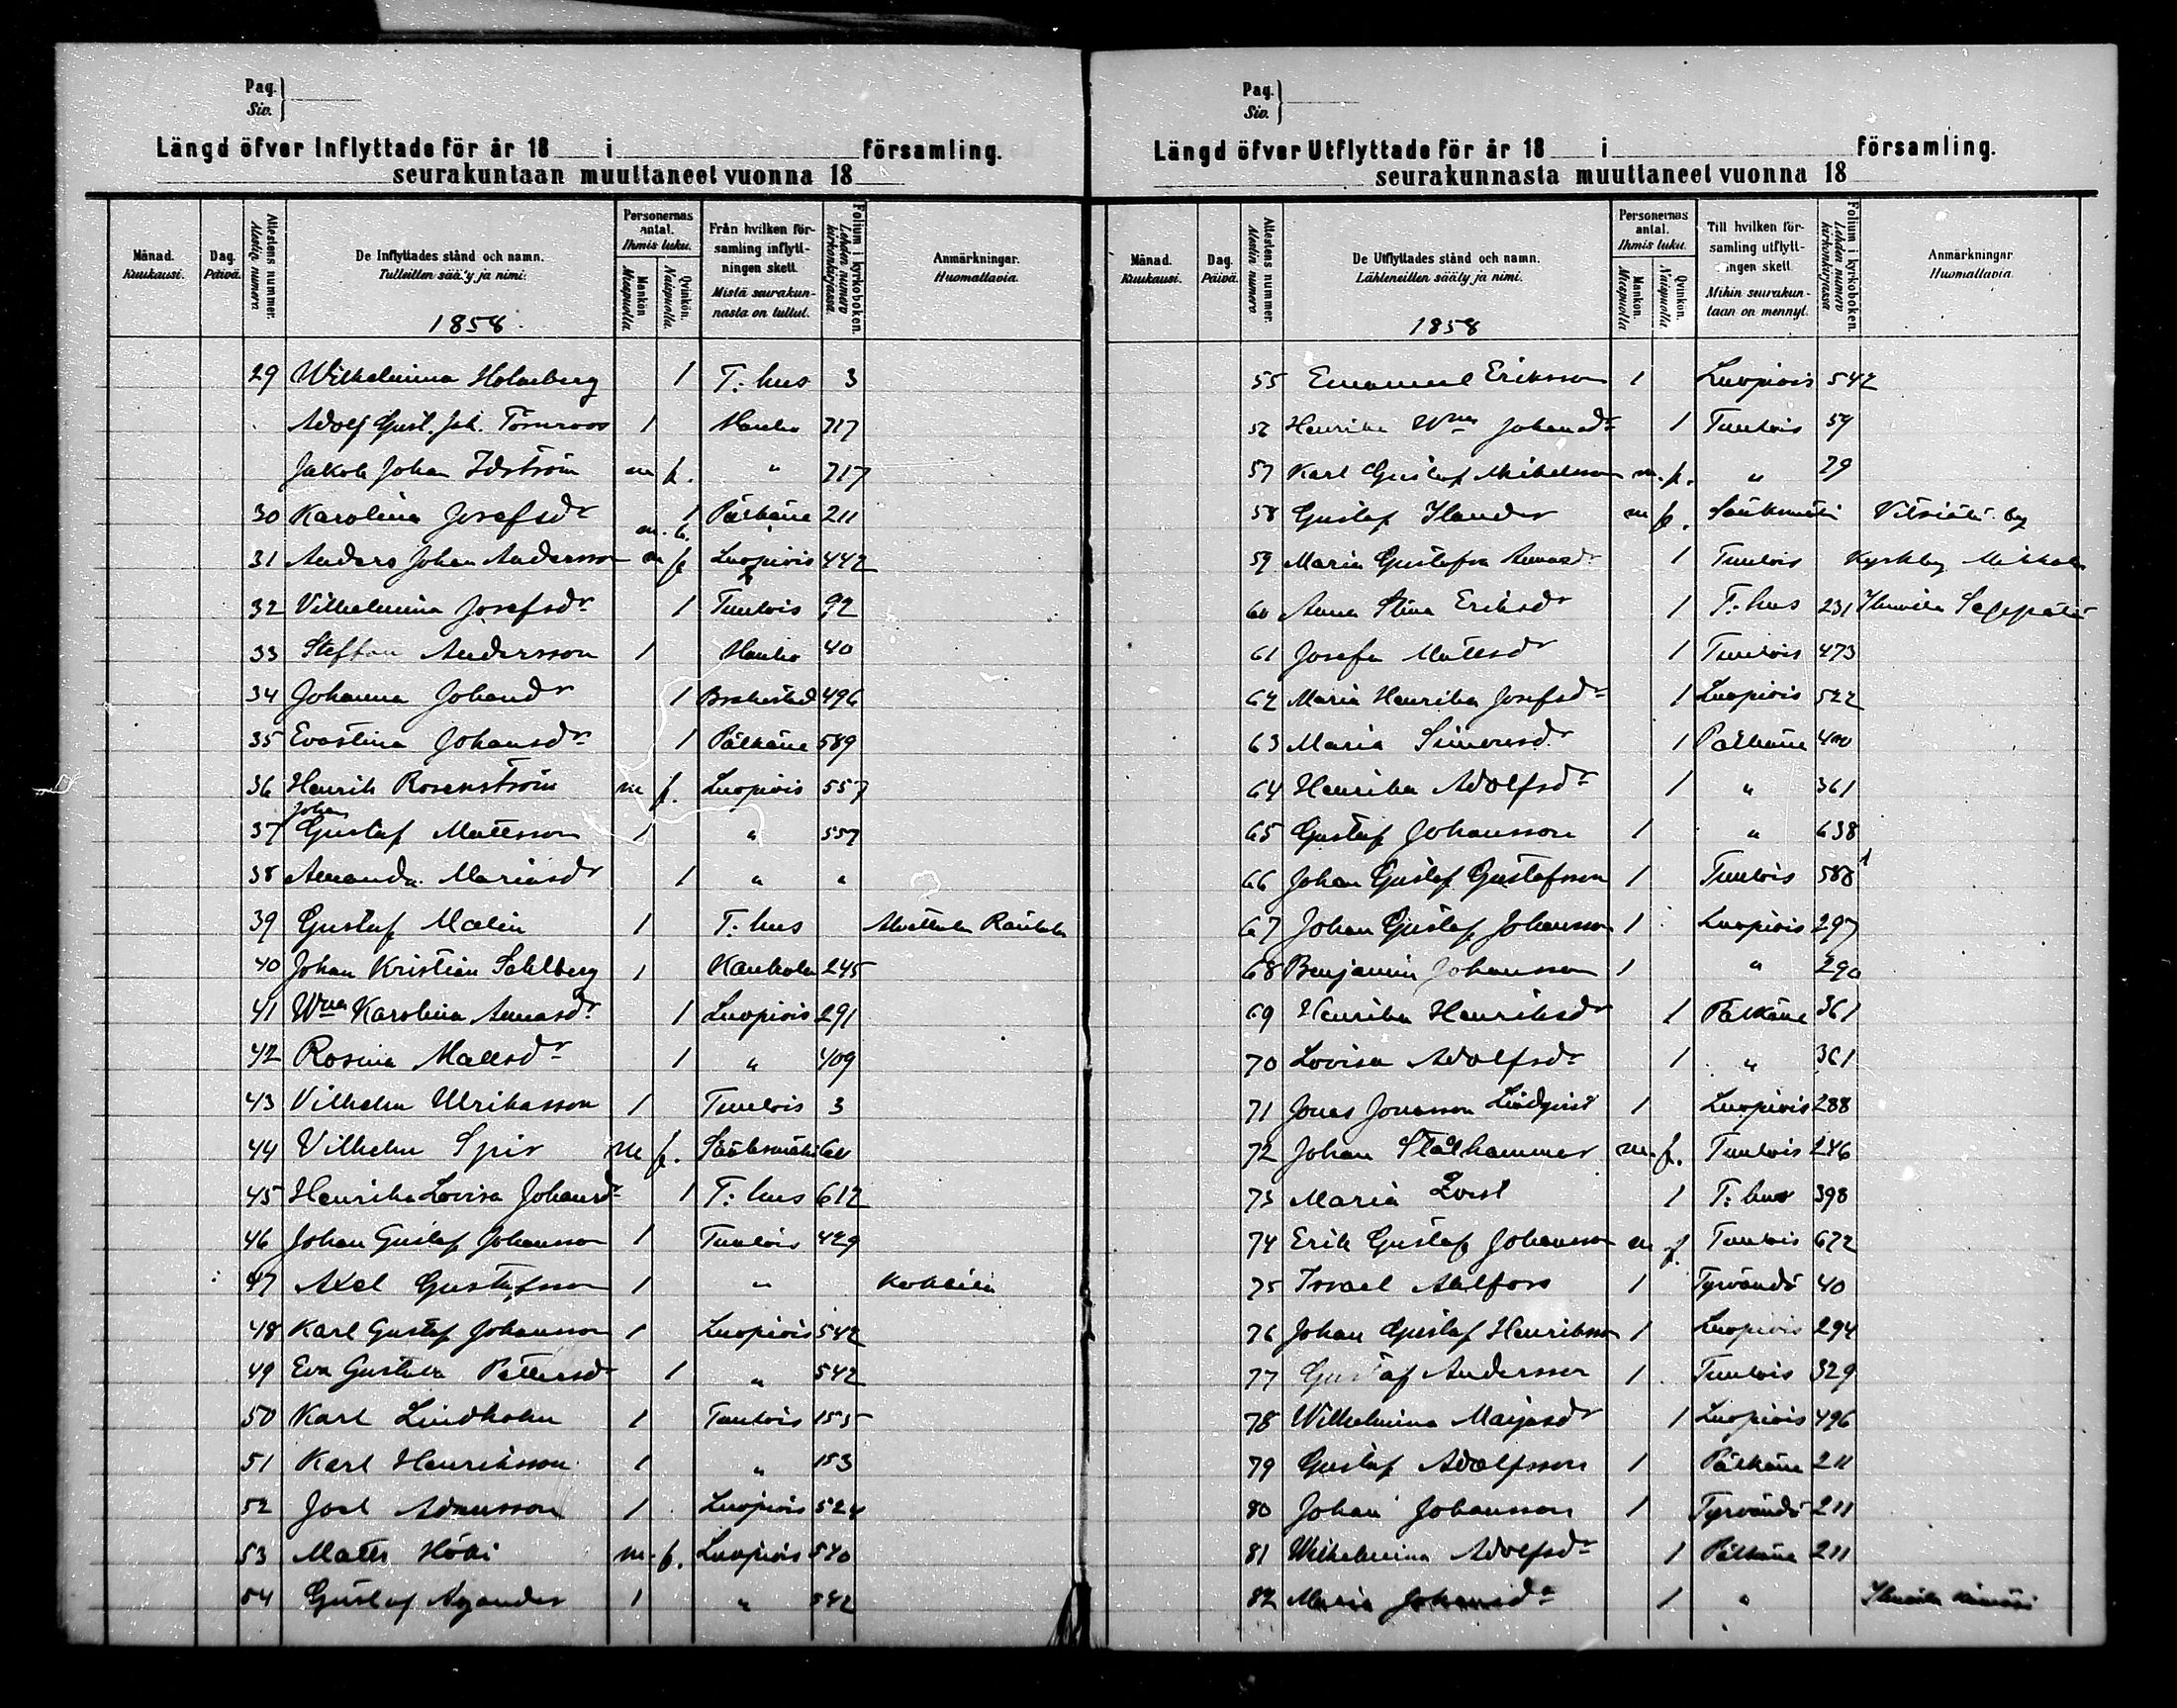 Pag.
Siv.
Längd öfver Inflyttade för år 18 i församling.
seurakuntaan muuttaneet vuonna 18
Månad. Kuukausi.
Dag. Päivä.
Attestens nummer. Alestin numero
De Inflyttades stånd och namn.
Tulleitten sääty ja nimi.
1858.
Personernas antal. Ihmis luku.
Mankön Miespuolia
Qvinkön. Naispuolia
Från hvilken församling inflyttningen skett.
Mistä seurakunnasta on tullut.
Folium i kyrkoboken. Lehden numero kirkonkirjassa.
Anmärkningar. Huomattavia.
29 Wilhelmina Holmberg 1 T:hus 3
Adolf Gust. Joh. Törnroos 1 Hauho 717
Jakob Johan Idström m f. " 717
30 Karolina Josefsdr 1 Pälkäne 211
31 Anders Johan Andersson m f Luopiois 442
32 Vilhelmina Josefsdr 1 Tuulois 92
33 Steffan Andersson 1 Hauho 40
34 Johanna Johansdr 1 Brahestad 496
35 Evastina Johansdr 1 Pälkäne 589
36 Henrik Rosenström m f. Luopiois 557
37 Johan Gustaf Mattsson 1 " 557
38 Amanda Mariasdr 1 " "
39 Gustaf Malin 1 T:hus
40 Johan Kristian Sahlberg 1 245
41 Wma Karolina Annasdr 1 Luopiois 291
42 Rosina Mattsdr 1 " 409
43 Vilhelm Ulrikasson 1 Tuulois 3
44 Vilhelm Spir m f. Sääksmäki
45 Henrika Lovisa Johansdr 1 T:hus 612
46 Johan Gustaf Johansson 1 Tuulois 429
47 Axel Gustafsson 1 "
48 Karl Gustaf Johansson 1 Luopiois 542
49 Eva Gustava Pettersdr 1 " 542
50 Karl Lindholm 1 Tuulois 153
51 Karl Henriksson 1 " 153
52 Joel Adamsson 1 Luopiois 524
53 Matts m. f. Luopiois 540
54 Gustaf Nyander 1 " 542
Pag.
Siv.
Längd öfver Utflyttade för år 18 i församling.
seurakunnasta muuttaneet vuonna 18
Månad. Kuukausi.
Dag. Päivä.
Attestens nummer. Alestin numero
De Utflyttades stånd och namn.
Lähteneitten sääty ja nimi.
1858
Personernas antal. Ihmis luku.
Mankön. Miespuolia
Qvinkön. Naispuolia
Till hvilken församling utflyttningen skett.
Mihin seurakuntaan on mennyt.
Folium i kyrkoboken. Lehden numero kirkonkirjassa
Anmärkningar Huomattavia.
55 Emanuel Eriksson 1 Luopiois 542
56 Henrika Wma Johansdr 1 Tuulois 59
57 Karl Gustaf Mikelsson m. f. " 79
58 Gustaf Ilander m f. Sääksmäki by
59 Maria Gustafva Annasdr 1 Tuulois Kyrkby Mikkola
60 Anna Stina Eriksdr 1 T:hus 231
61 Josefa Mattsdr 1 Tuulois 473
62 Maria Henrika Josefsdr 1 Luopiois 522
63 Maria Simonsdr 1 Pälkäne 400
64 Henrika Adolfsdr 1 " 361
65 Gustaf Johansson 1 " 638
66 Johan Gustaf Gustafsson 1 Tuulois 588
67 Johan Gustaf Johansson 1 Luopiois 297
68 Benjamin Johansson 1 " 290
69 Henrika Henriksdr 1 Pälkäne 361
70 Lovisa Adolfsdr 1 " 361
71 Jonas Jonasson Lindqvist 1 Luopiois 288
72 Johan Stålhammer m. f. Tuulois 246
73 Maria Qvist 1 T:hus 398
74 Erik Gustaf Johansson m f. Tuulois 672
75 Israel Ahlfors 1 Tyrvändö 40
76 Johan Gustaf Henriksson 1 Luopiois 294
77 Gustaf Andersson 1 Tuulois 329
78 Wilhelmina Maijasdr 1 Luopiois 496
79 Gustaf Adolfsson 1 Pälkäne 211
80 Johan Johansson 1 Tyrvändö 211
81 Wilhelmina Adolfsdr 1 Pälkäne 211
82 Maria Johansdr 1 "